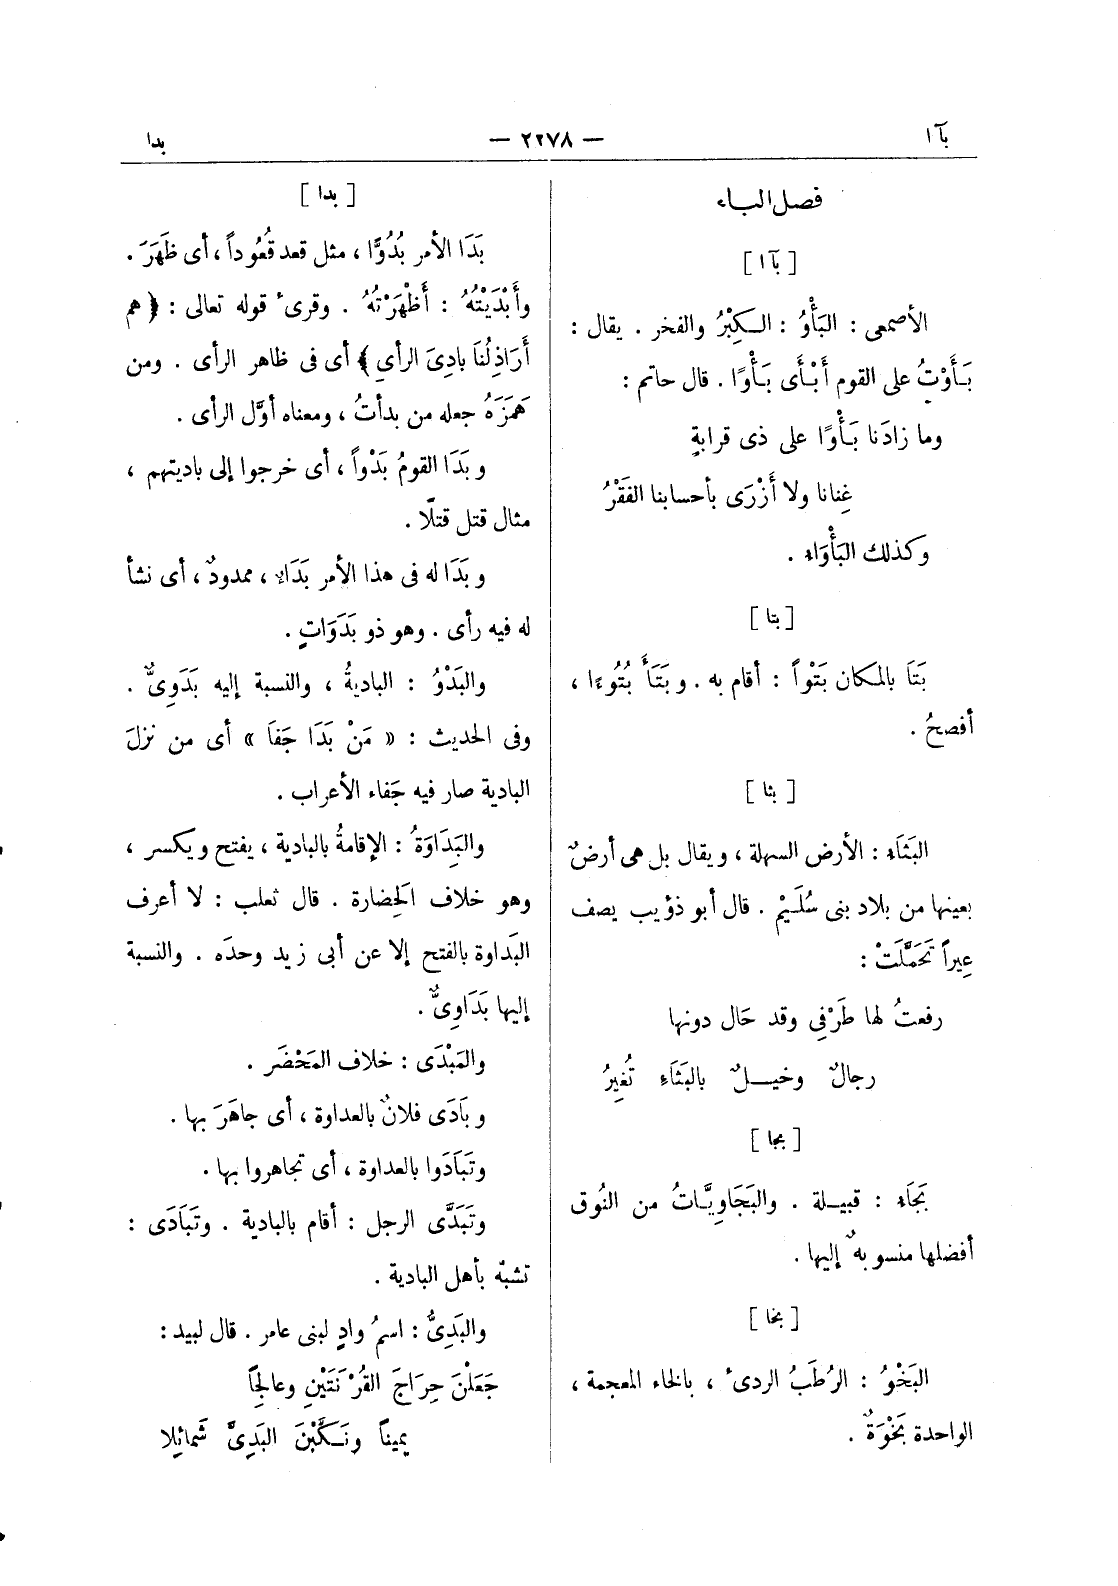 بآا — ٢٢٧٨ — بدا
فصل الباء
[ بآا ]
الأصمعى : البَأْوُ : الكِبْرُ والفخر . يقال :
بَأَوْتُ على القوم أَبْأَى بَأْوًا . قال حاتم :
وما زادَنا بَأْوًا على ذى قرابةٍ
غِنانا ولا أَزْرَى بأحسابنا الفَقْرُ
وكذلك البَأْوَاء .
[ بتا ]
بَتَا بالمكان بَتْواً : أقام به . وبَتَأَ بُتُوءًا ،
أفصحُ .
[ بثا ]
البَثَاء : الأرض السهلة ، ويقال بل هى أرضٌ
بعينها من بلاد بنى سُلَيْمٍ . قال أبو ذؤيب يصف
عِيراً تَحَمَّلَتْ :
رفعتُ لها طَرْفِي وقد حَال دونها
رجالٌ وخيلٌ بالبَثَاءِ تُغِيرُ
[ بجا ]
بَجَاء : قبيلة . والبَجَاوِيَّاتُ من النُوق
أفضلها منسوبهٌ إليها .
[ بخا ]
البَخْوُ : الرُطَبُ الردىء ، بالخاء المعجمة ،
الواحدة بَخْوَةٌ .
[ بدا ]
بَدَا الأمر بُدُوًّا ، مثل قعد قُعُوداً ، أى ظَهَرَ .
وأَبْدَيْتُهُ : أَظْهَرْتهُ . وقرىء قوله تعالى : ﴿ هم
أَرَاذِلُنَا بادِىَ الرأىِ ﴾ أى فى ظاهر الرأى . ومن
هَمَزَهُ جعله من بدأتُ ، ومعناه أوَّل الرأى .
وبَدَا القومُ بَدْواً ، أى خرجوا إلى باديتهم ،
مثال قتل قتلًا .
وبَدَا له فى هذا الأمر بَدَاء ، ممدودٌ ، أى نشأ
له فيه رأى . وهو ذو بَدَوَاتٍ .
والبَدْوُ : الباديةُ ، والنسبة إليه بَدَوِىٌّ .
وفى الحديث : « مَنْ بَدَا جَفَا » أى من نزلَ
البادية صار فيه جَفاء الأعراب .
والبَِدَاوَةُ : الإقامةُ بالبادية ، يفتح ويكسر ،
وهو خلاف الحِضارة . قال ثعلب : لا أعرف
البَداوة بالفتح إلا عن أبى زيد وحدَه . والنسبة
إليها بَدَاوِىٌّ .
والمَبْدَى : خلاف المَحْضَر .
وبَادَى فلانٌ بالعداوة ، أى جاهَرَ بها .
وتَبَادَوا بالعداوة ، أى تجاهروا بها .
وتَبَدَّى الرجل : أقام بالبادية . وتَبَادَى :
تشبّه بأهل البادية .
والبَدِىُّ : اسمُ وادٍ لبنى عامر . قال لبيد :
جَعَلْنَ حِرَاجَ القُرْنَتَيْنِ وعالِجاً
يميناً ونَكَّبْنَ البَدِىَّ شَمائِلا